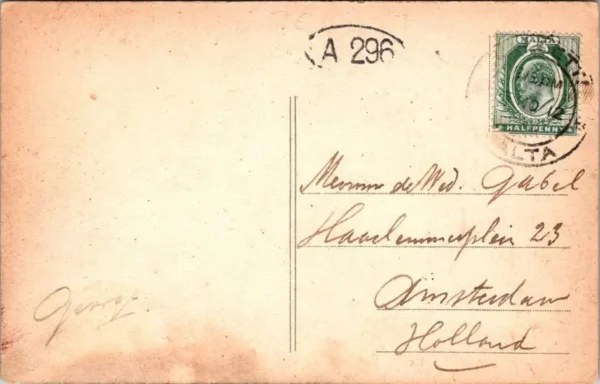 A 296
MALTA
HALFPENNY
ALTA
Mevrouw de Wed. Gabel
Haarlemmerplein 23
Amsterdam
Holland
George